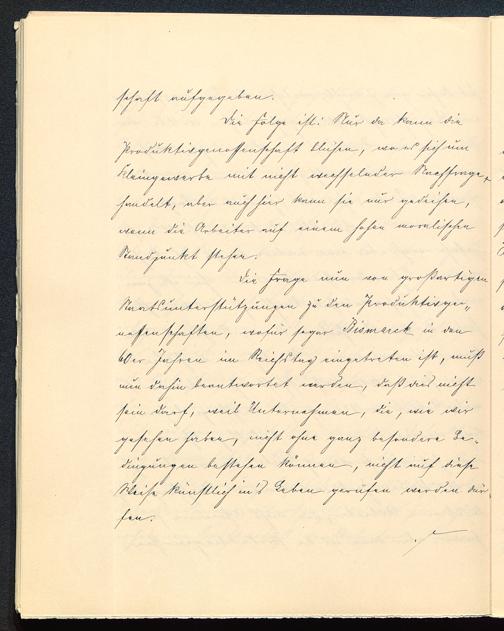 schaft aufgegeben.
Die Folge ist: Nur da kann die
Produktivgenossenschaft blühen, wo es sich um
Kleingewerbe mit nicht wechselnder Nachfrage
handelt, aber auch hier kann sie nur gedeihen,
wenn die Arbeiter auf einem hohen moralischen
Standpunkt stehen.
Die Frage nun von großartigen
Staatsunterstützungen zu den Produktivge„
nossenschaften, wofür sogar Bismarck in den
60er Jahren im Reichstag eingetreten ist, muß
nun dahin beantwortet werden, daß dies nicht
sein darf, weil Unternehmen, die, wie wir
gesehen haben, nicht ohne ganz besondere Be-
dingungen bestehen können, nicht auf diese
Weise künstlich in's Leben gerufen werden dür
fen.